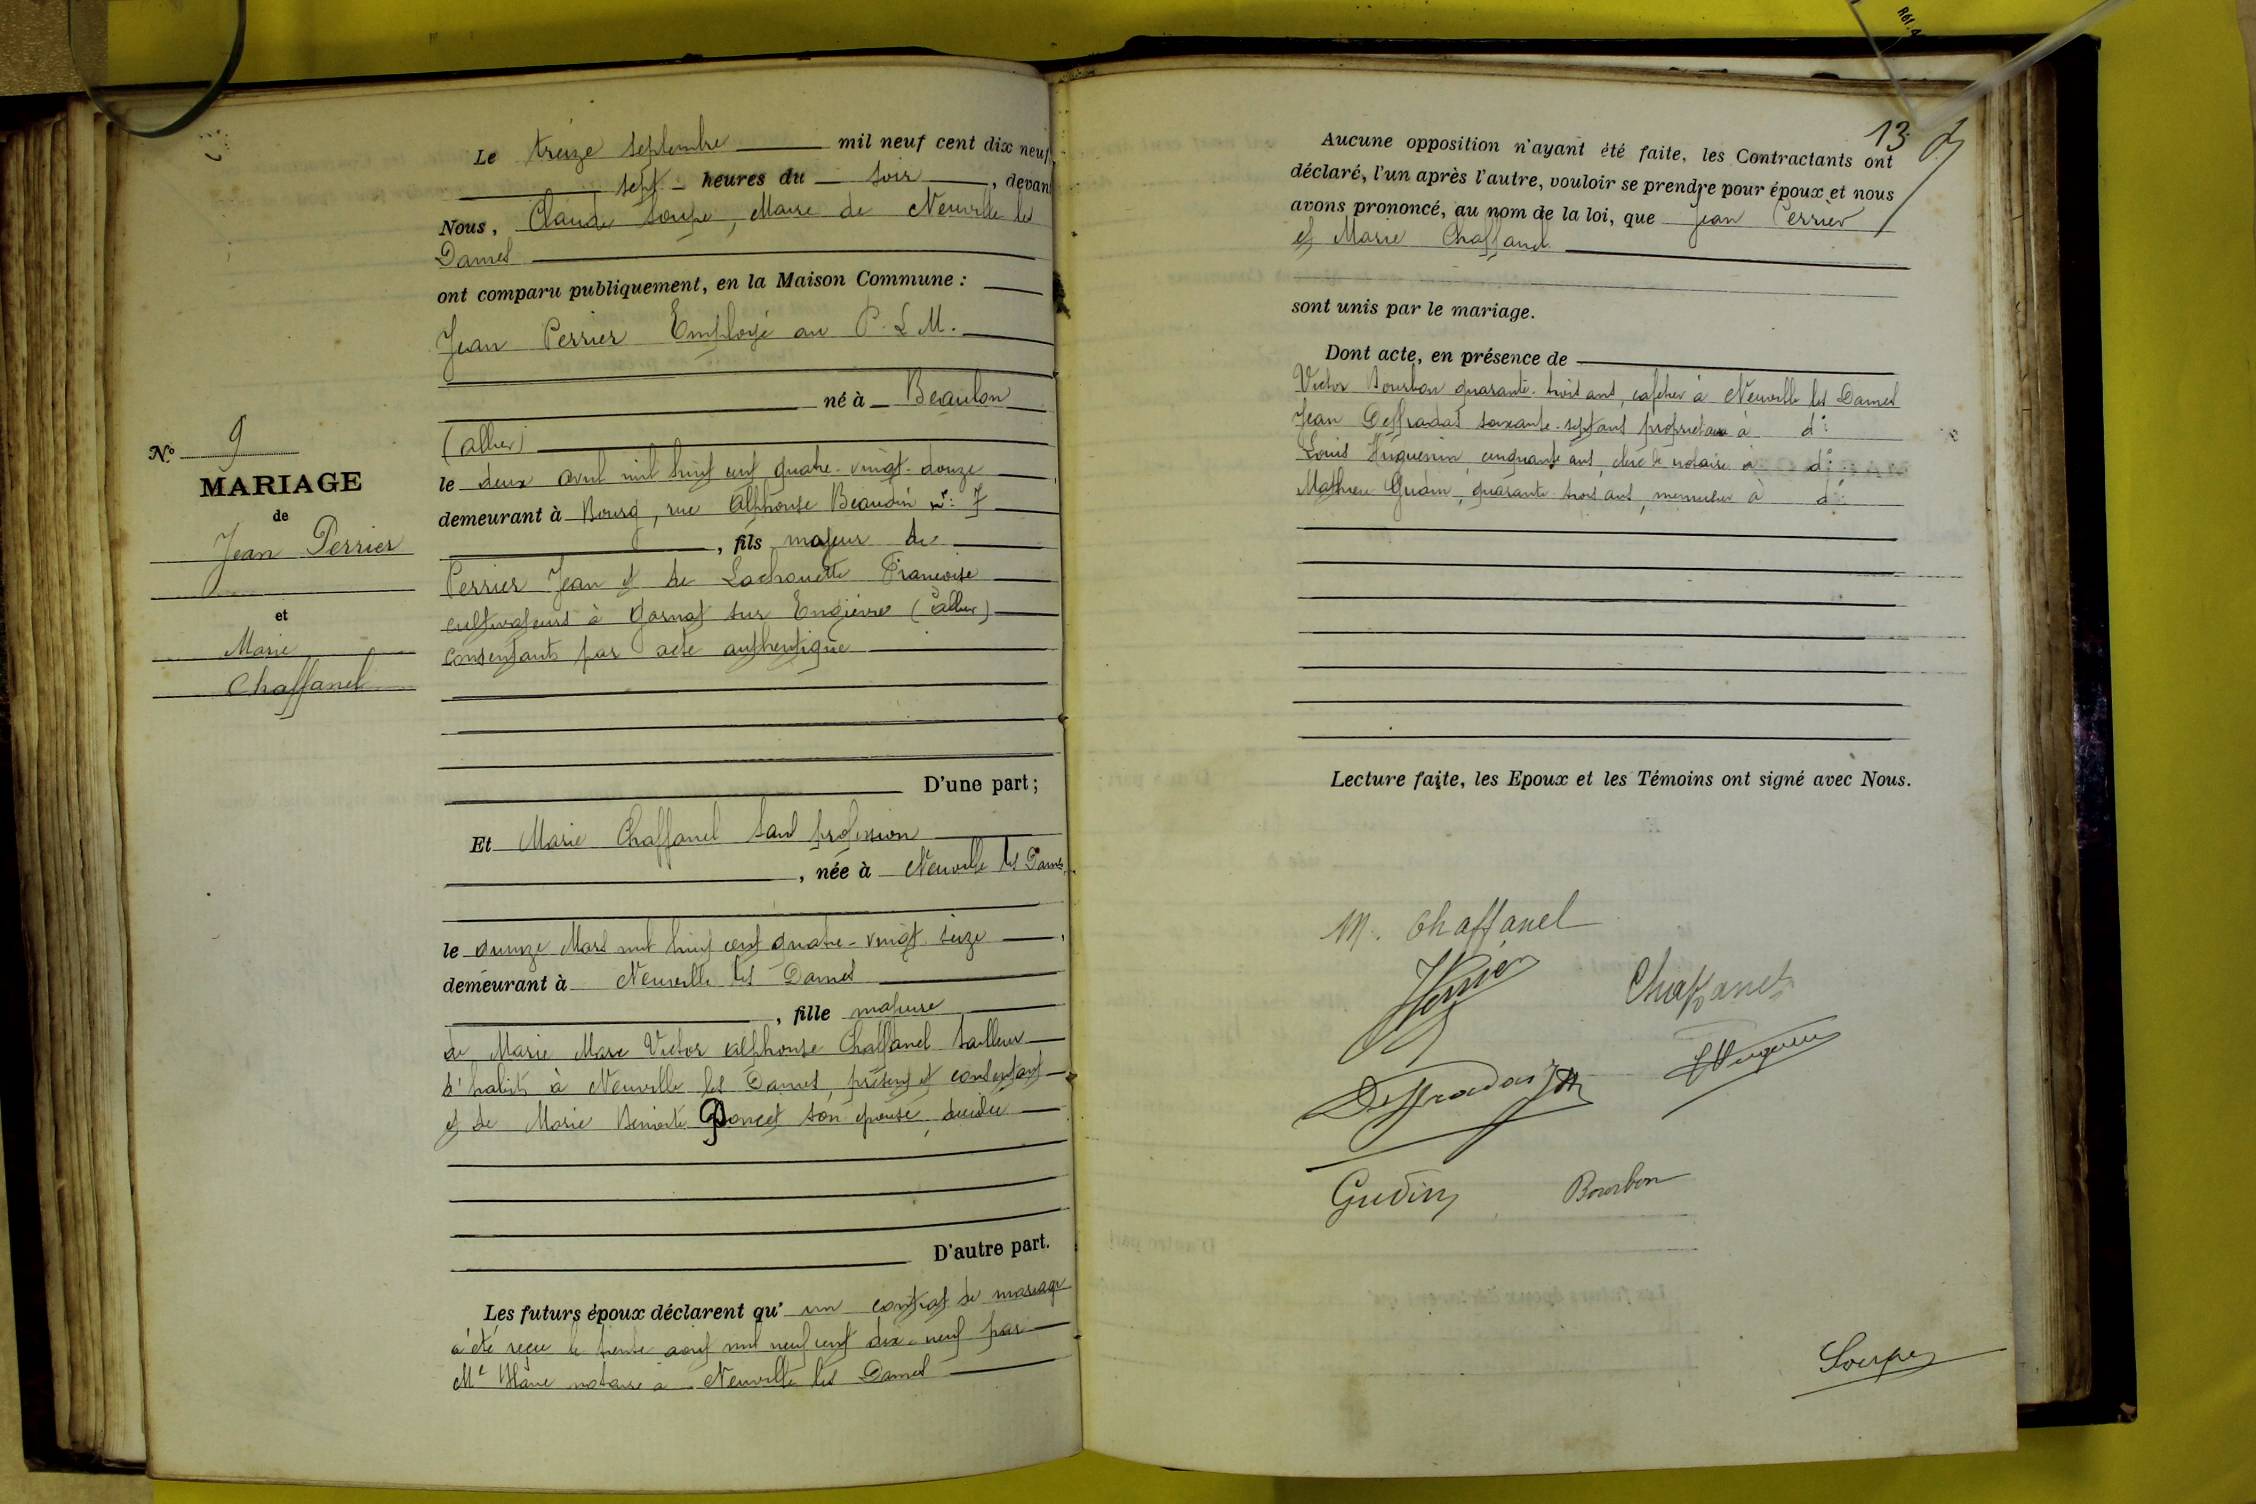 Le treize septembre mil neuf cent dix neuf
sept heures du soir, devant
Nous, Claude Soupe, Maire de Neuville les
Dames
ont comparu publiquement, en la Maison Commune :
Jean Perrier Employé au P. L M.
né à Beaulon
(allier)
le deux avril mil huit cent quatre-vingt-douze
demeurant à Bourg, rue Alphonse Beaudin n°: 7
, fils majeur de
Perrier Jean et de Lachouette Francoise
cultivateurs à Garnat sur Engièvre (allier)
consentants par acte authentique
D'une part;
N° 9
MARIAGE
de
Jean Perrier
et
Marie
Chaffanel
Et Marie Chaffanel sans profession
, née à Neuville les Dames
le quinze Mars mil huit cent quatre-vingt-seize,
demeurant à Neuville les Dames
, fille majeure
de Marie Marc Victor alphonse Chaffanel tailleur
d'habits à Neuville les Dames, présent et consentant
et de Marie Benoite Poncet son épouse, décédée
D'autre part.
Les futurs époux déclarent qu' un contrat de mariage
a été reçu le trente aout mil neuf cent dix-neuf par
Me notaire à Neuville les Dames
13
Aucune opposition n'ayant été faite, les Contractants ont
déclaré, l'un après l'autre, vouloir se prendre pour époux et nous
avons prononcé, au nom de la loi, que Jean Perrier
et Marie Chaffanel
sont unis par le mariage.
Dont acte, en présence de
Victor Bourbon quarante-trois ans, cafetier à Neuville les Dames
Jean Deffradas soixante-sept ans propriétaire à d°:
Louis Huguenin, cinquante ans, clerc de notaire à d°:
Mathieu Gudin, quarante-trois ans, menuisier à d°:
Lecture faite, les Epoux et les Témoins ont signé avec Nous.
M. Chaffanel
JPerrier
Chaffanel
Deffradas
LHuguenin
Gudin
Bourbon
Soupe